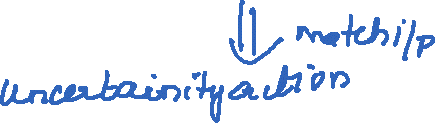 match i/p
uncertainity action